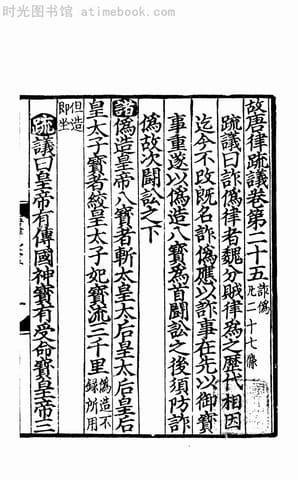 时光图书馆 - atimebook.com
故唐律疏議卷第二十五 詐偽 凡二十七條
疏議曰詐偽律者魏分賊律為之歷代相因
迄今不改既名詐偽應以詐事在先以御寶
事重遂以偽造八寶為首鬪訟之後須防詐
偽故次鬪訟之下
諸偽造皇帝八寶者斬太皇太后皇太后皇后
皇太子寶者絞皇太子妃寶流三千里 偽造不録所用
但造即坐
疏議曰皇帝有傳國神寶有受命寶皇帝三